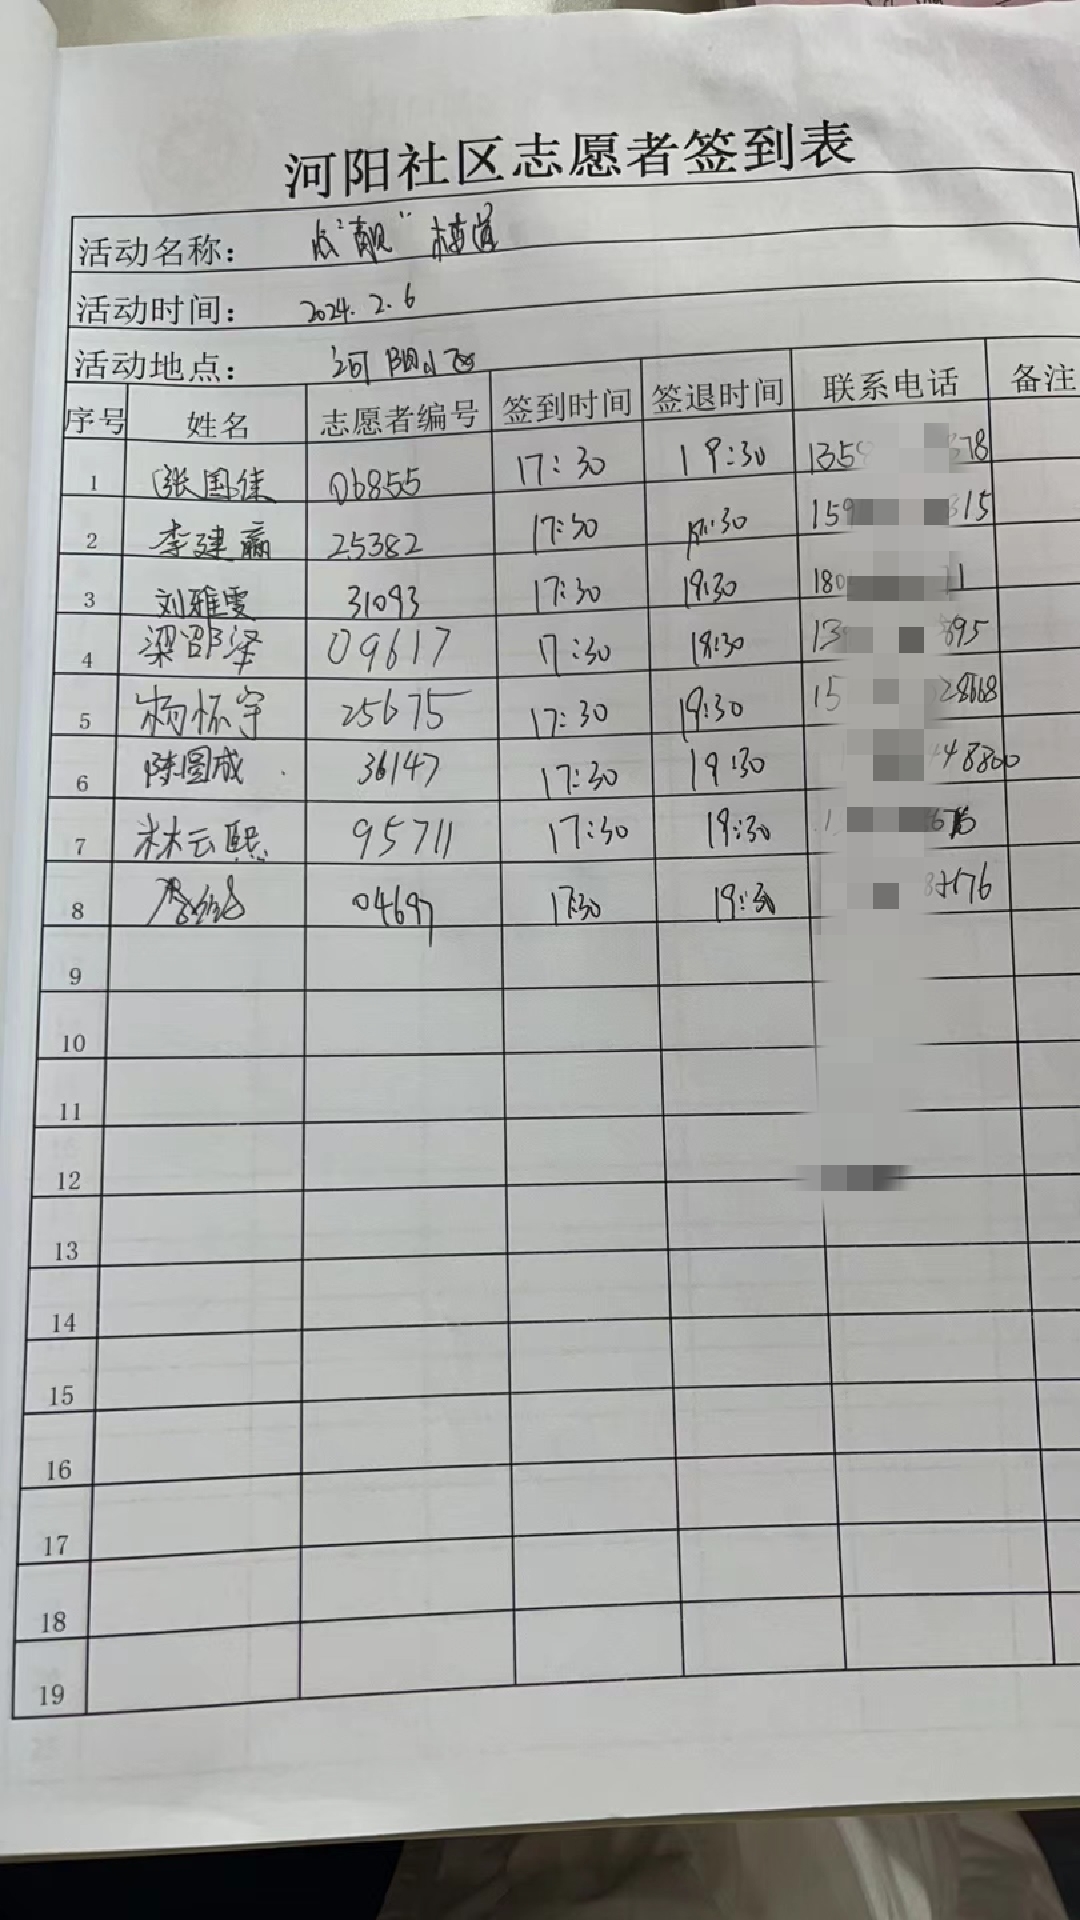 河阳社区志愿者签到表
活动名称： 点"靓" 楼道
活动时间： 2024.2.6
活动地点： 河阳小区
序号 姓名 志愿者编号 签到时间 签退时间 联系电话 备注
1 张国佳 06855 17:30 19:30 1359 378
2 李建赢 25382 17:30 19:30 159 315
3 刘雅雯 31093 17:30 19:30 180 1
4 梁邵泽 09617 17:30 19:30 13 895
5 杨怀宇 25675 17:30 19:30 15 28668
6 陈国成 36147 17:30 19:30 48800
7 林云熙 95711 17:30 19:30 1 676
8 04697 17:30 19:30 176
9
10
11
12
13
14
15
16
17
18
19